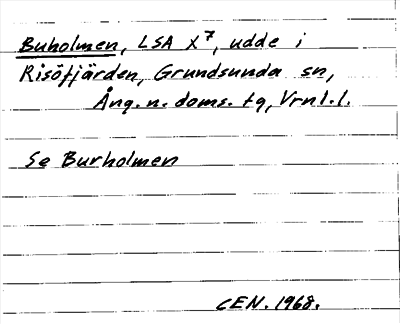 Buholmen, LSA X⁷, udde i
Risöfjärden, Grundsunda sn,
Ång. n. doms. tg, Vrnl.l.
Se Burholmen
CEN. 1968.